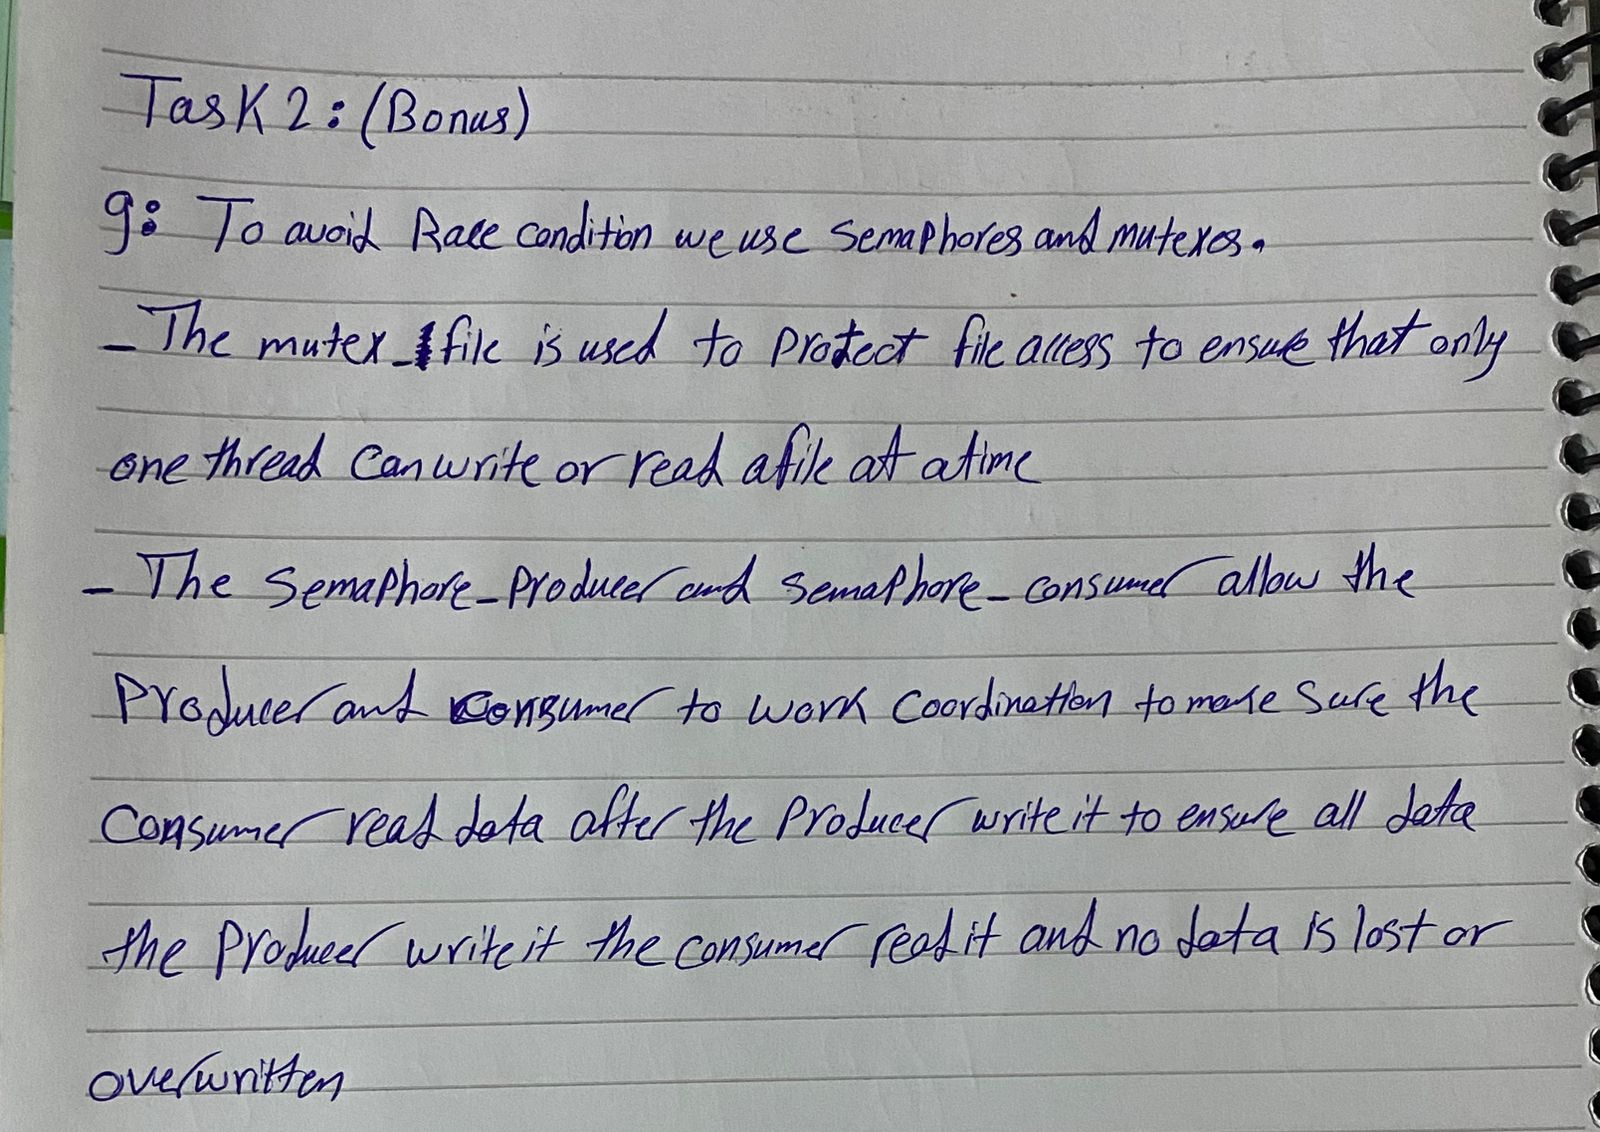 Task 2: (Bonus)
g: To avoid Race condition we use semaphores and mutexes.
- The mutex_file is used to protect file access to ensure that only
one thread can write or read a file at a time
- The semaphore_producer and semaphore_consumer allow the
producer and consumer to work coordination to make sure the
consumer read data after the producer write it to ensure all data
the producer write it the consumer read it and no data is lost or
overwritten